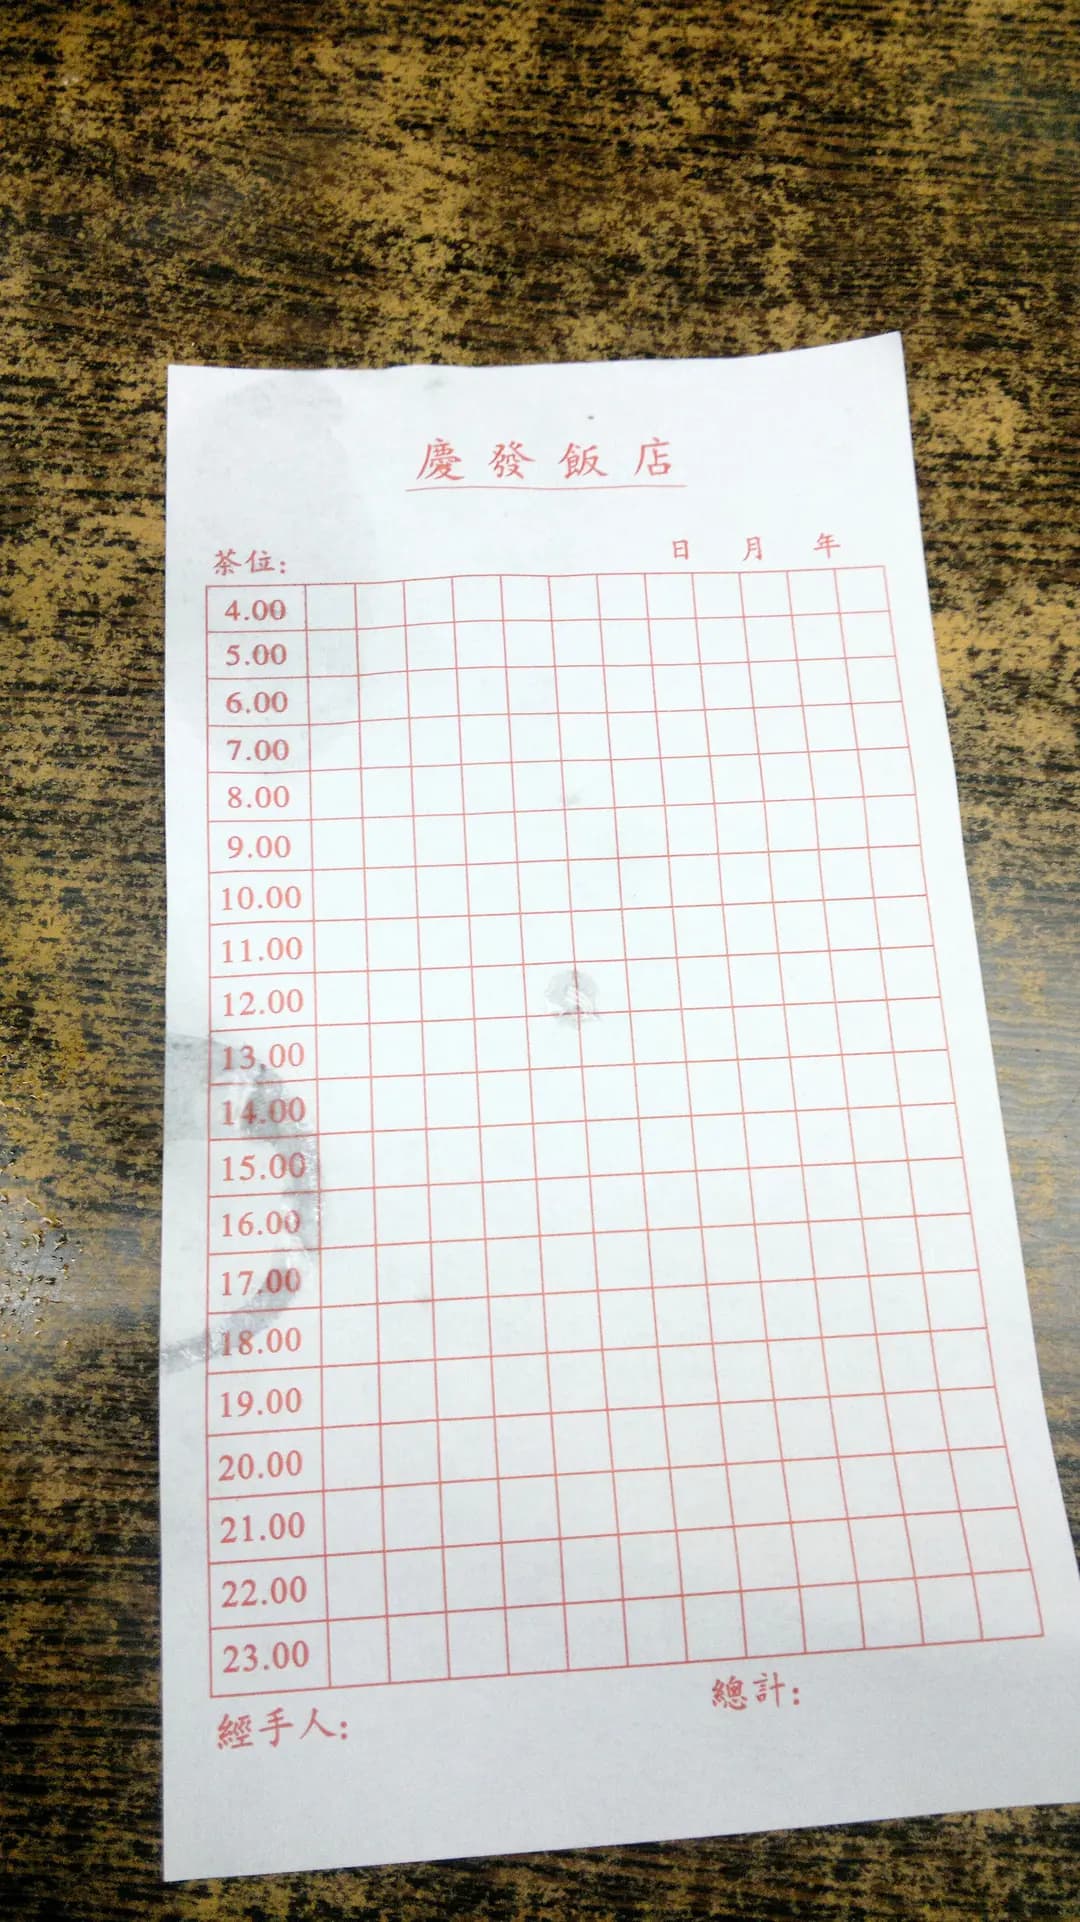 慶發飯店
茶位: 日 月 年
4.00
5.00
6.00
7.00
8.00
9.00
10.00
11.00
12.00
13.00
14.00
15.00
16.00
17.00
18.00
19.00
20.00
21.00
22.00
23.00
總計:
經手人: